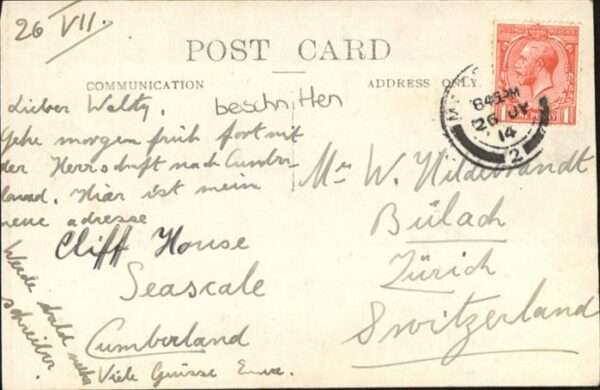 26 VII.
POST CARD
COMMUNICATION
ADDRESS ONLY.
beschnitten
Lieber Walty,
Gehe morgen früh fort mit
der Herrschaft nach Cumber-
land. Hier ist mein
neue adresse
Cliff House
Seascale
Cumberland
Werde bald mehr
schreiben
Viele Grüsse
Mr W. Hildebrandt
Bülach
Zürich
Switzerland
8 45 PM
26 JY
14
2
1 1